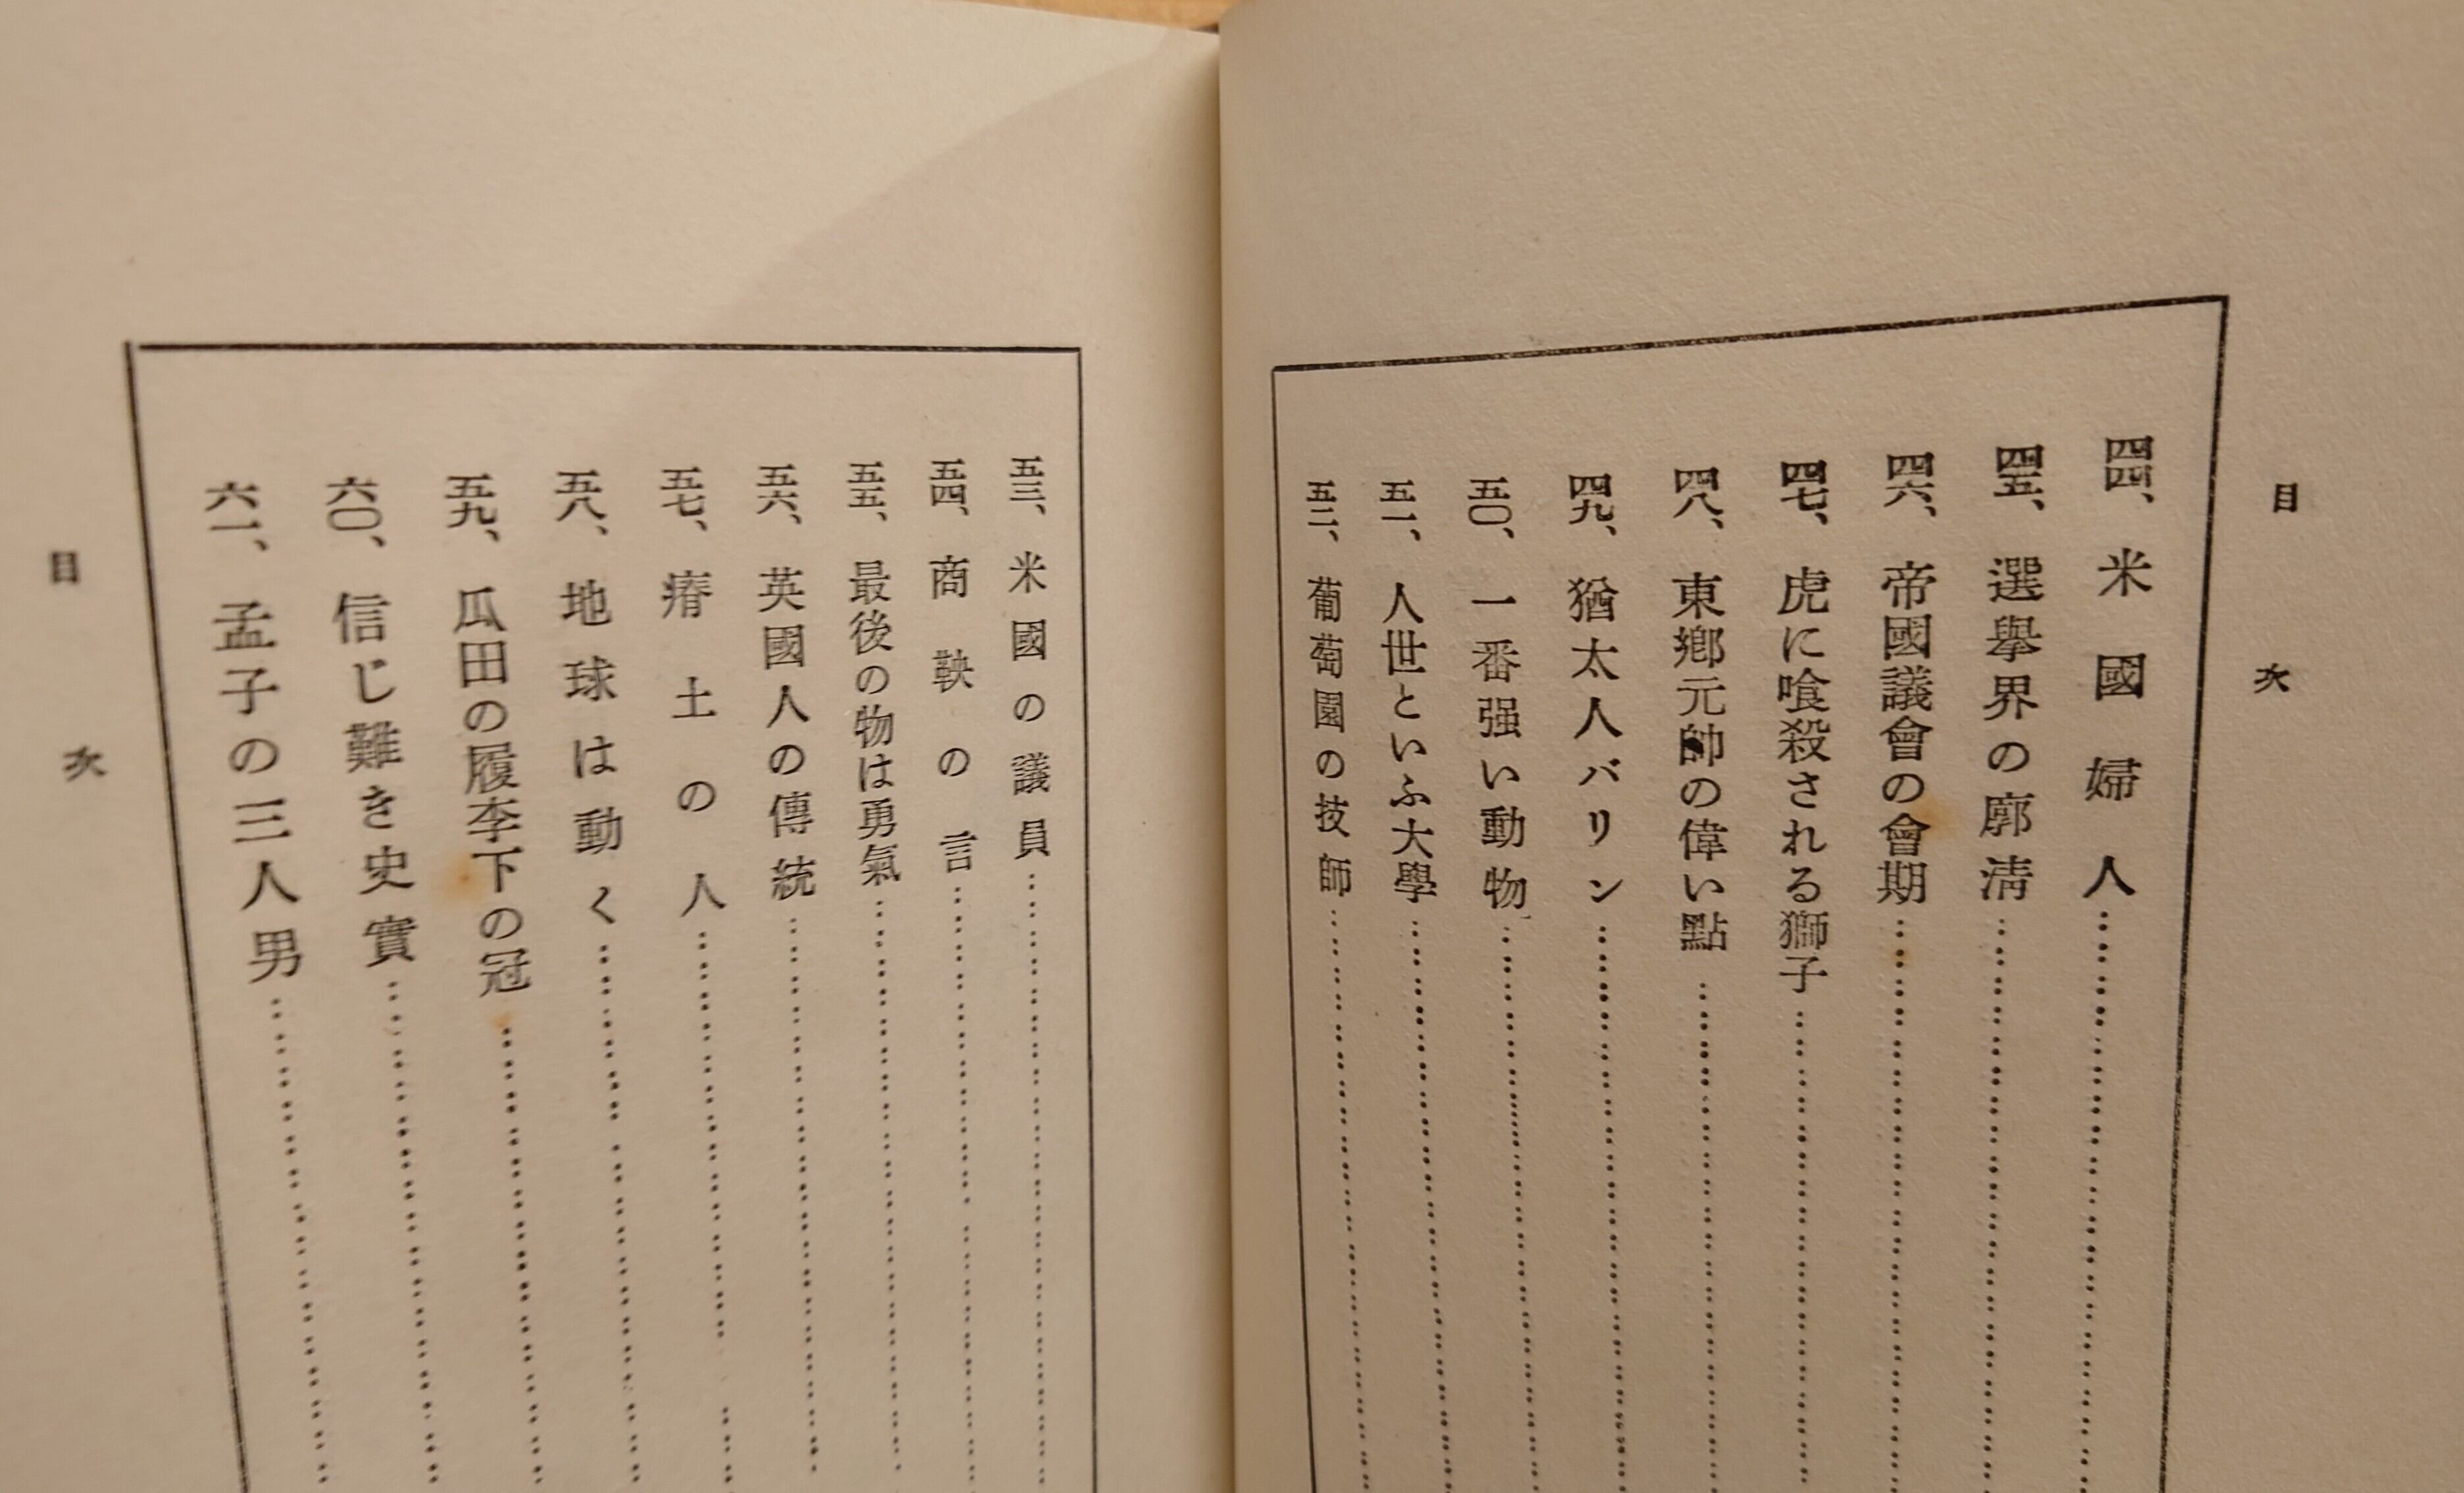 目次
四四、米國婦人
四五、選擧界の廓淸
四六、帝國議會の會期
四七、虎に喰殺される獅子
四八、東鄕元帥の偉い點
四九、猶太人バリン
五〇、一番强い動物
五一、人世といふ大學
五二、葡萄園の技師
五三、米國の議員
五四、商鞅の言
五五、最後の物は勇氣
五六、英國人の傳統
五七、瘠土の人
五八、地球は動く
五九、瓜田の履李下の冠
六〇、信じ難き史實
六一、孟子の三人男
目次